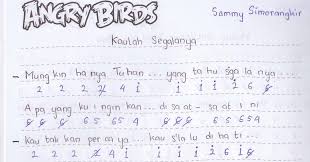 ANGRY BIRDS
Sammy Simorangkir
Kaulah Segalanya
- Mung kin ha nya Tu han ... yang ta hu sga la nya ...
2 2 2 2 4 i i i i 2 6
A pa yang ku i ngin kan ... di sa at - sa at i ni
6 5 65 4 6 5 65 4
- Kau tak kan per ca ya ... kau s'la lu di ha ti ...
2 2 2 2 4 i i i i 2 i 6